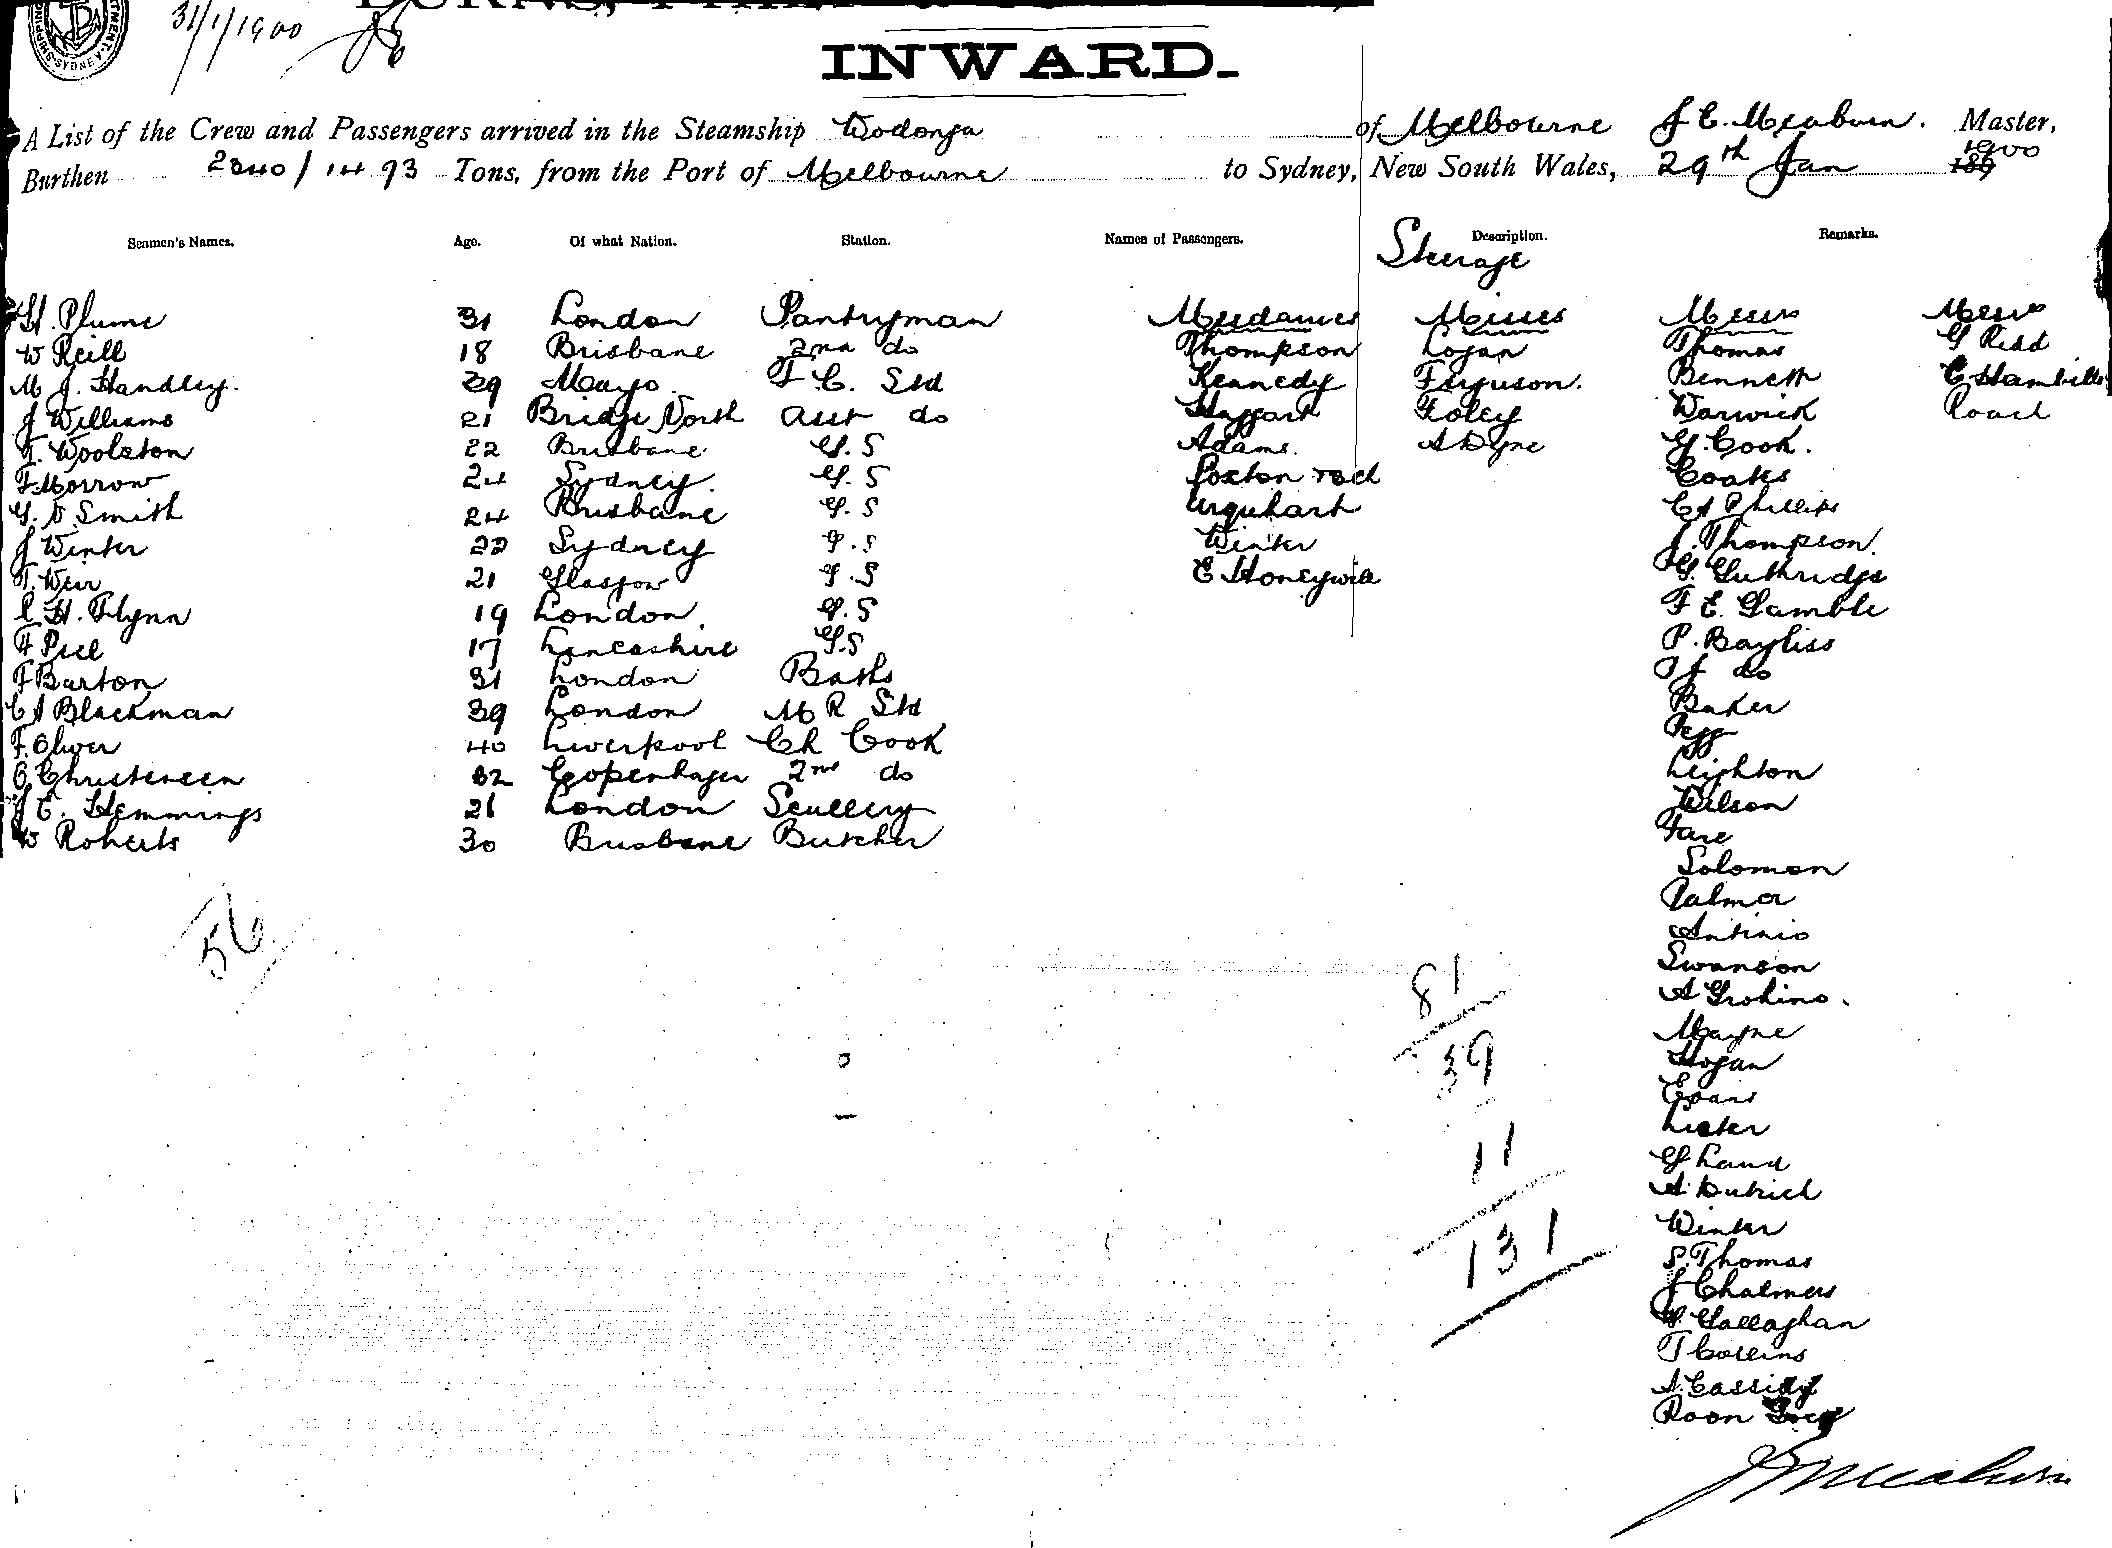 31/1/1900
INWARD.
A List of the Crew and Passengers arrived in the Steamship Wodonga of Melbourne J E. Meaburn. Master,
Burthen 2340/1493 Tons, from the Port of Melbourne to Sydney, New South Wales, 29th Jan 1900
Seamen's Names. Age. Of what Nation. Station. Names of Passengers. Description. Remarks.
Steerage
H. Plume 31 London Pantryman Mesdames Misses Messrs Messrs
W Reill 18 Brisbane 2nd do Thompson Logan Thomas G Ridd
M J. Handley. 29 Mayo F C. Std Kennedy Ferguson. Bennett
J Williams 21 Bridge North asst do Haggart Foley Warwick Roach
T. Woolston 22 Brisbane G. S Adams. G. Cook.
F. Morrow 24 Sydney. G. S Coates
G. D Smith 24 Brisbane G. S Urquhart C A Phillips
J Winter 22 Sydney G. S Winter J. Thompson.
T. Weir 21 Glasgow G. S E Honeywill G. Guthridge
E. H. Flynn 19 London. G. S F E. Gamble
F Peel 17 Lancashire G.S P. Bayliss
F Burton 31 London Baths do
C A Blackman 39 London M R Std Baker
F. Oliver 40 Liverpool Ch Cook Pegg
C. Christensen 32 Copenhagen 2nd do Leighton
J E. Hemmings 21 London Scullery Wilson
W Roberts 30 Brisbane Butcher Fare
Solomon
Palmer
Antinio
56
Swanson
81
39
Mayne
Hogan
Evans
Lister
11
G Laund
131
Winter
S. Thomas
J Chalmers
Gallaghan
T Collins
A. Cassidy
Roon
J E Meaburn